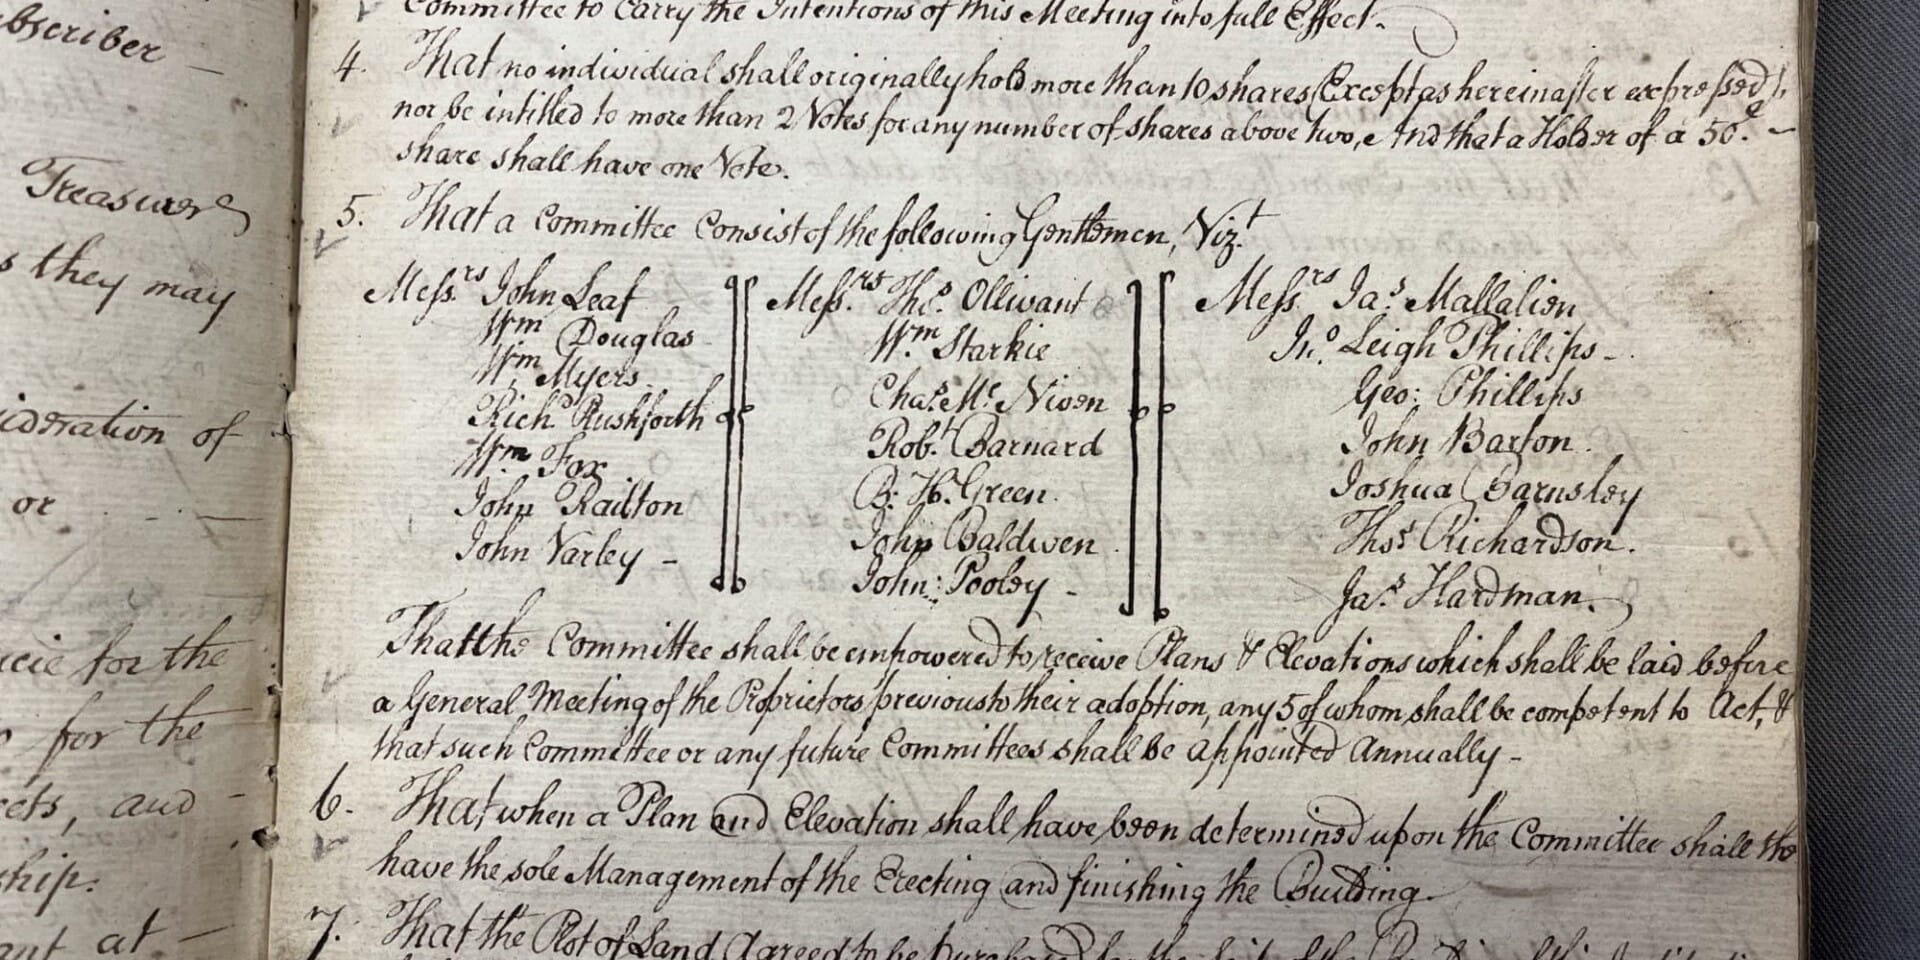 bscriber —
Treasurer
s they may
ideration of
or
for the
for the
ects, and -
ship.
at -
Committee to Carry the Intentions of this Meeting into full Effect.
4. That no individual shall originally hold more than 10 shares (Except as hereinafter expressed),
nor be intitled to more than 2 Votes for any number of shares above two, And that a Holder of a 50£
share shall have one Vote.
5. That a Committee Consist of the following Gentlemen, Vizt
Messrs John Leaf
Wm Douglas
Wm Myers
Richd Rushforth
Wm Fox
John Railton
John Varley -
Messrs Thos Ollivant
Wm Starkie
Chas Mc Niven
Robt Barnard
B. H. Green
John Baldwen
John: Pooley -
Messrs Jas Mallalien
Jno Leigh Phillips -
Geo: Phillips
John Barton.
Joshua Barnsley
Thos Richardson.
Jas Hardman.
That the Committee shall be empowered to receive Plans & Elevations which shall be laid before
a General Meeting of the Proprietors previous to their adoption, any 5 of whom shall be competent to Act, &
that such Committee or any future Committees shall be Appointed Annually -
6. That when a Plan and Elevation shall have been determined upon the Committee shall the
have the sole Management of the Erecting and finishing the Building.
7. That the Plot of Land Agreed to be Purchased for the